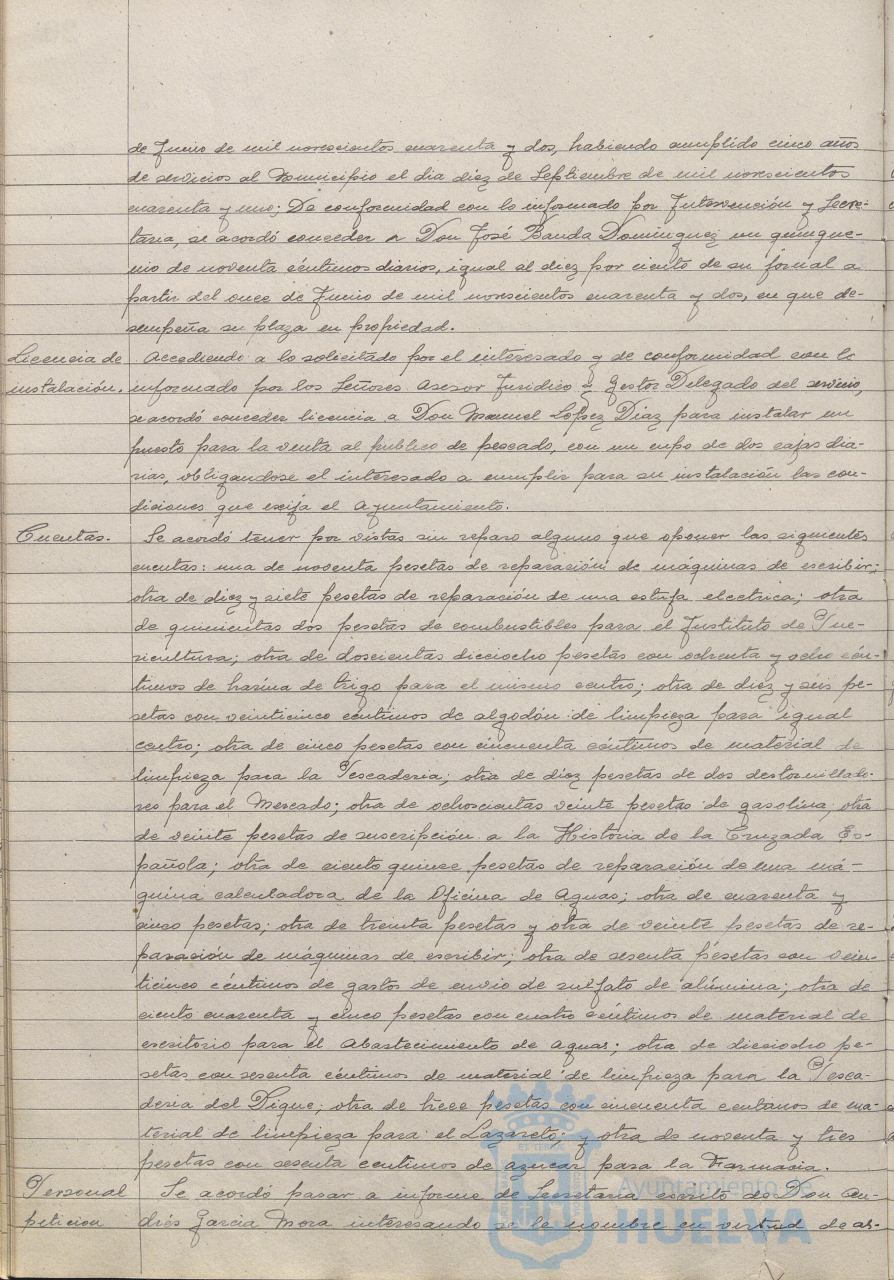 de Junio de mil novescientos cuarenta y dos, habiendo cumplido cinco años
de servicios al Municipio el dia diez de Septiembre de mil novescientos
cuarenta y uno; De conformidad con lo informado por Intervención y Secre-
taria, se acordó conceder a Don José Banda Dominguez un quinque-
nio de noventa céntimos diarios, igual al diez por ciento de su jornal a
partir del once de Junio de mil novescientos cuarenta y dos, en que de-
sempeña su plaza en propiedad.
Licencia de instalación.
Accediendo a lo solicitado por el interesado y de conformidad con lo
informado por los Señores Asesor Juridico y Gestor Delegado del servicio,
se acordó conceder licencia a Don Manuel López Diaz para instalar un
puesto para la venta al publico de pescado, con un cupo de dos cajas dia-
rias, obligandose el interesado a cumplir para su instalación las con-
diciones que exija el Ayuntamiento.
Cuentas.
Se acordó tener por vistas sin reparo alguno que oponer las siguientes
cuentas: una de noventa pesetas de reparación de máquinas de escribir;
otra de diez y siete pesetas de reparación de una estufa electrica; otra
de quinientas dos pesetas de combustibles para el Instituto de Pue-
ricultura; otra de doscientas dieciocho pesetas con ochenta y ocho cén-
timos de harina de trigo para el mismo centro; otra de diez y séis pe-
setas con veinticinco céntimos de algodón de limpieza para igual
centro; otra de cinco pesetas con cincuenta céntimos de material de
limpieza para la Pescaderia; otra de diez pesetas de dos destornillado-
res para el Mercado; otra de ochoscientas veinte pesetas de gasolina; otra
de veinte pesetas de suscripción a la Historia de la Cruzada Es-
pañola; otra de ciento quince pesetas de reparación de una má-
quina calculadora de la Oficina de Aguas; otra de cuarenta y
cinco pesetas; otra de treinta pesetas y otra de veinte pesetas de re-
paración de máquinas de escribir; otra de sesenta pesetas con vein-
ticinco céntimos de gastos de envio de sulfato de alúmina; otra de
ciento cuarenta y cinco pesetas con cuatro céntimos de material de
escritorio para el Abastecimiento de Aguas; otra de dieciocho pe-
setas con sesenta céntimos de material de limpieza para la Pesca-
deria del Dique; otra de trece pesetas con cincuenta centimos de ma-
terial de limpieza para el Lazareto; y otra de noventa y tres
pesetas con sesenta centimos de azucar para la Farmacia.
Personal peticion
Se acordó pasar a informe de Secretaria escrito de Don An-
drés Garcia Mora interesando se le nombre en virtud de as-
Ayuntamiento de
HUELVA